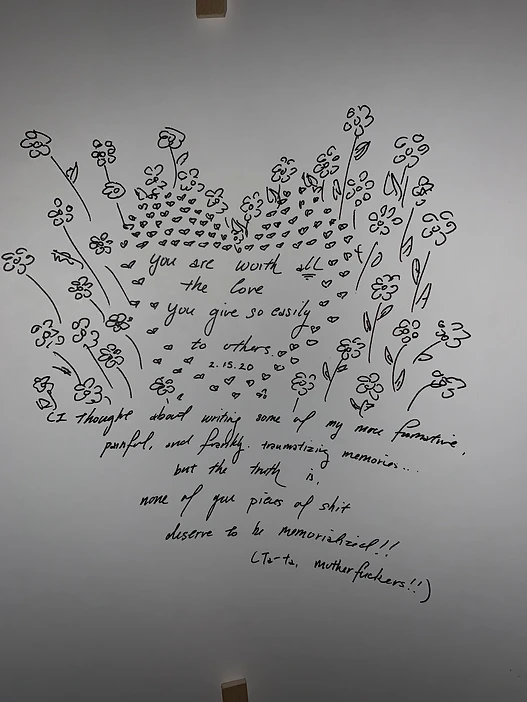 you are worth all
the love
you give so easily
to others.
2.15.20
(I thought about writing some of my more formative,
painful, and frankly. traumatizing memories...
but the truth is,
none of you pieces of shit
deserve to be memorialized!!
(Ta-ta, mutherfuckers!!)